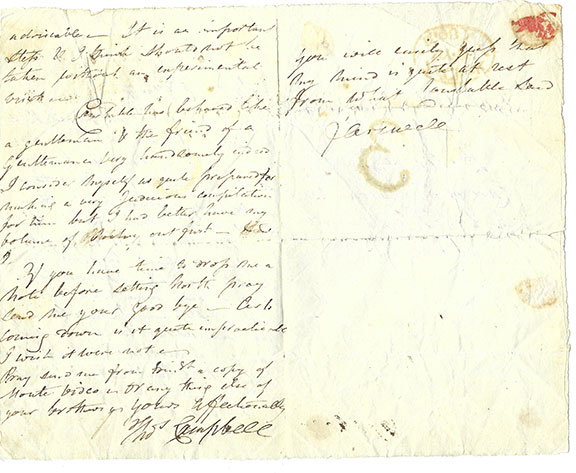 advisable — It is an important
step & I think should not be
taken without an experimental
trial —
Constable has behaved like
a gentleman & the friend of a
Gentleman very handsomely indeed
I consider myself as quite prepared for
making a very judicious compilation
for him but I had better have my
volume of out first —
If you have time to drop me a
Note before setting North pray
send me your good bye —
coming down is it quite impracticable
I wish it were not —
Pray send me from a copy of
Monte Video or any thing else of
your brothers yours affectionately
Thos Campbell
You will easily guess that
my mind is quite at rest
from what Constable said
farewell